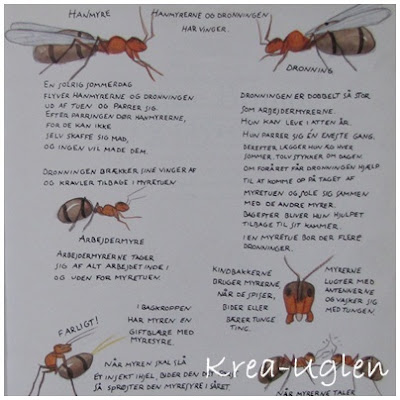 HANMYRE
HANMYRERNE OG DRONNINGEN
HAR VINGER.
DRONNING
EN SOLRIG SOMMERDAG
FLYVER HANMYRERNE OG DRONNINGEN
UD AF TUEN OG PARRER SIG.
EFTER PARRINGEN DØR HANMYRERNE,
FOR DE KAN IKKE
SELV SKAFFE SIG MAD,
OG INGEN VIL MADE DEM.
DRONNINGEN BRÆKKER SINE VINGER AF
OG KRAVLER TILBAGE I MYRETUEN
DRONNINGEN ER DOBBELT SÅ STOR
SOM ARBEJDERMYRERNE.
HUN KAN LEVE I ATTEN ÅR.
HUN PARRER SIG ÉN ENESTE GANG.
DEREFTER LÆGGER HUN ÆG HVER
SOMMER. TOLV STYKKER OM DAGEN.
OM FORÅRET FÅR DRONNINGEN HJÆLP
TIL AT KOMME OP PÅ TAGET AF
MYRETUEN OG SOLE SIG SAMMEN
MED DE ANDRE MYRER.
BAGEFTER BLIVER HUN HJULPET
TILBAGE TIL SIT KAMMER.
I EN MYRETUE BOR DER FLERE
DRONNINGER.
ARBEJDERMYRE
ARBEJDERMYRERNE TAGER
SIG AF ALT ARBEJDET INDE I
OG UDEN FOR MYRETUEN.
KINDBAKKERNE
BRUGER MYRERNE
NÅR DE SPISER,
BIDER ELLER
BÆRER TUNGE
TING.
MYRERNE
LUGTER MED
ANTENNERNE
OG VASKER SIG
MED TUNGEN.
FARLIGT!
I BAGKROPPEN
HAR MYREN EN
GIFTBLÆRE MED
MYRESYRE.
NÅR MYREN SKAL SLÅ
ET INSEKT IHJEL, BIDER DEN DET
SÅ SPRØJTER DEN MYRESYRE I SÅRET
Krea-Uglen
NÅR MYRERNE TALER